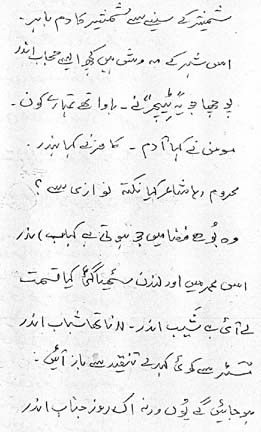 شمشیر کے سینے سے شمشیر کا دم باہر۔
اس شہر کے مہ وش ہیں کچھ ایسے حجاب اندر
پوچھا جو یہ ٹیچر نے۔ باوا تھے تمہارے کون۔
مومن نے کہا آدم۔ کافر نے کہا بندر۔
محروم رہا شاعر کیا نکتہ نوازی سے؟
وہ بُو ہے فضا میں جو ہوتی ہے کباب اندر
اس عمر میں اور لندن گئی کیا قسمت
لے آئی ہے شیب اندر۔ لانا تھا شباب اندر
مسٹر سے کوئی کہدے تنقید سے باز آئیں۔
ہو جائیں گے یُوں ورنہ اک روز جناب اندر